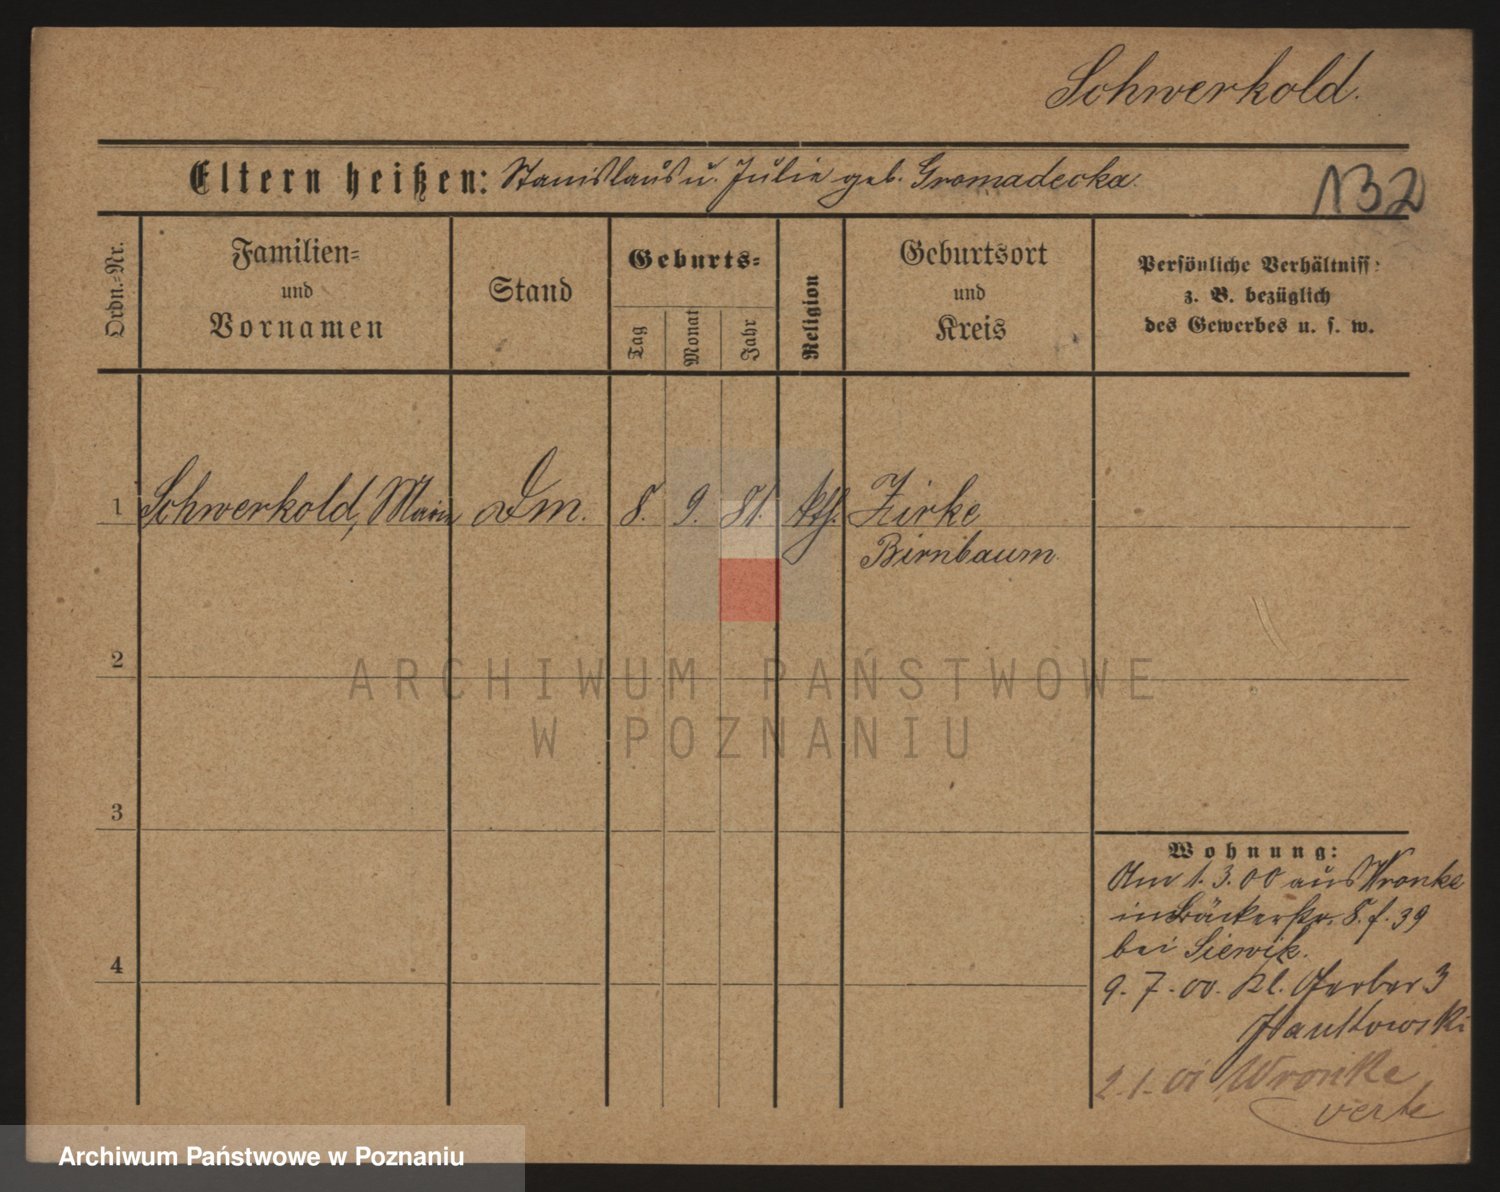 Schwerkold.
Eltern heißen: Stanislaus u. Julie geb. Gromadecka.
132
Ordn.-Nr.
Familien-
und
Vornamen
Stand
Geburts-
Tag
Monat
Jahr
Religion
Geburtsort
und
Kreis
Persönliche Verhältniss:
z. B. bezüglich
des Gewerbes u. s. w.
1 Schwerkold, Marie Dm. 8. 9. 81. kth. Zirke
Birnbaum.
2
ARCHIWUM PAŃSTWOWE
W POZNANIU
3
Wohnung:
Am 1. 3. 00 aus Wronke
in Bäckerstr. 8. f. 39
bei Siewik.
4
9. 7. 00. Kl. Gerber 3
2. 1. 01 Wronke
verte
Archiwum Państwowe w Poznaniu